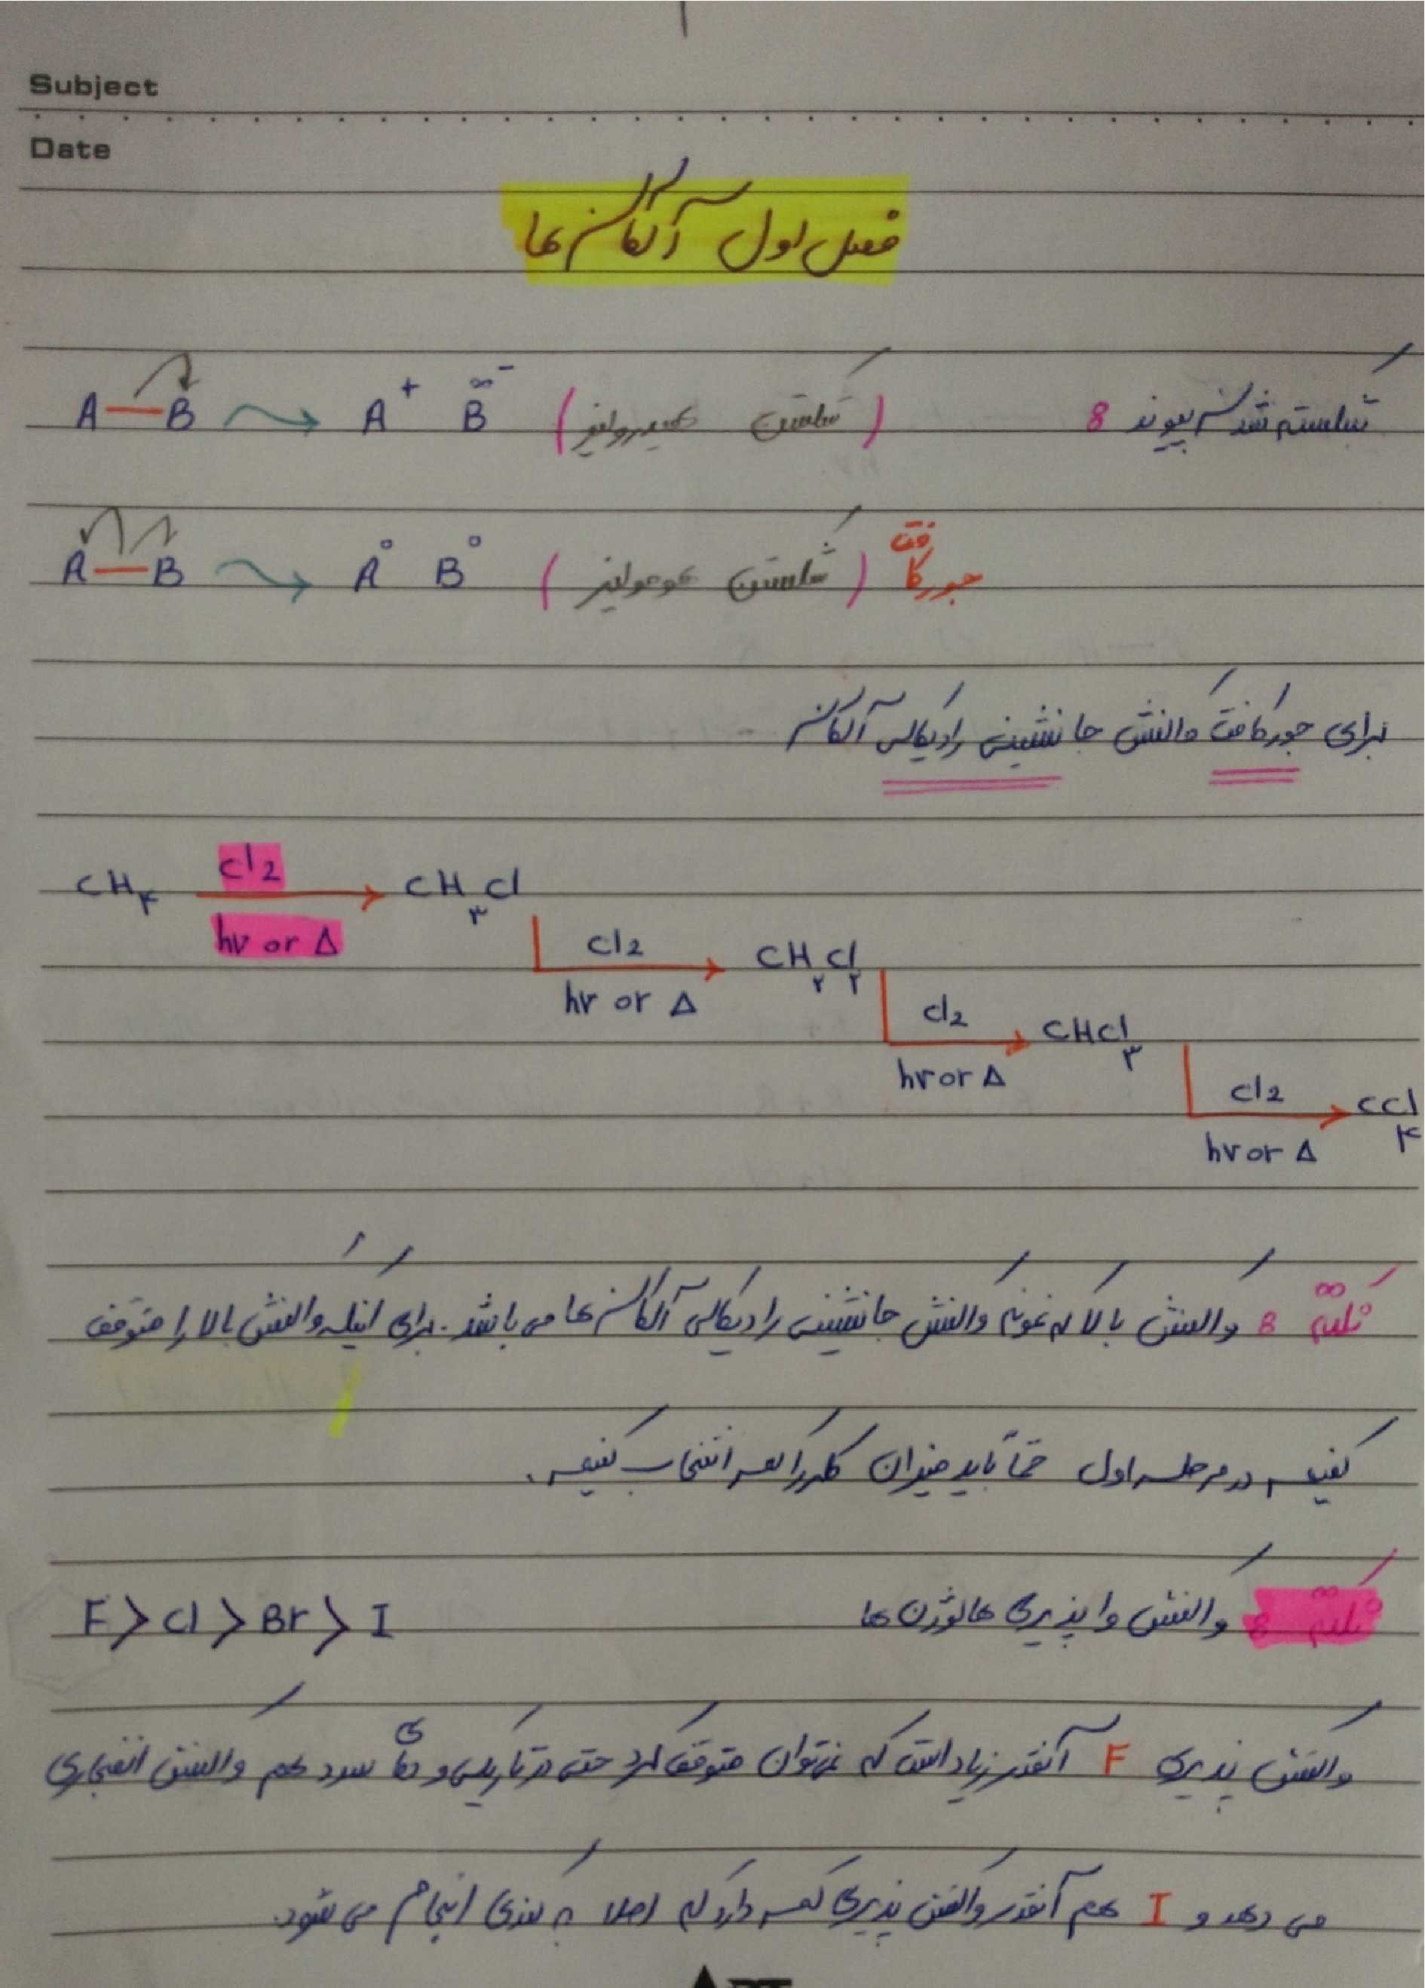 Subject
Date
فصل اول آلکان ها
شکسته شدن پیوند :
A—B → A⁺ B̈⁻ (شکستن هیدرولیز)
A—B → A° B° (شکستن هومولیز) جورکافت
برای جورکافت واکنش جانشینی رادیکالی آلکان
CH۴ Cl2 hν or Δ → CH۳Cl
Cl2 hν or Δ → CH۲Cl۲
Cl2 hν or Δ → CHCl۳
Cl2 hν or Δ → CCl۴
نکته : واکنش بالا یه نمونه واکنش جانشینی رادیکالی آلکان ها می باشد. برای اینکه واکنش بالا را متوقف
کنیم در مرحله اول حتماً باید میزان کلر را کم انتخاب کنیم.
نکته : واکنش واپذیری هالوژن ها F > Cl > Br > I
واکنش پذیری F آنقدر زیاد است که نمی توان متوقف کرد حتی در تاریکی و دمای سرد هم واکنش انفجاری
می دهد و I هم آنقدر واکنش پذیری کمی دارد که اصلا به کندی انجام می شود.